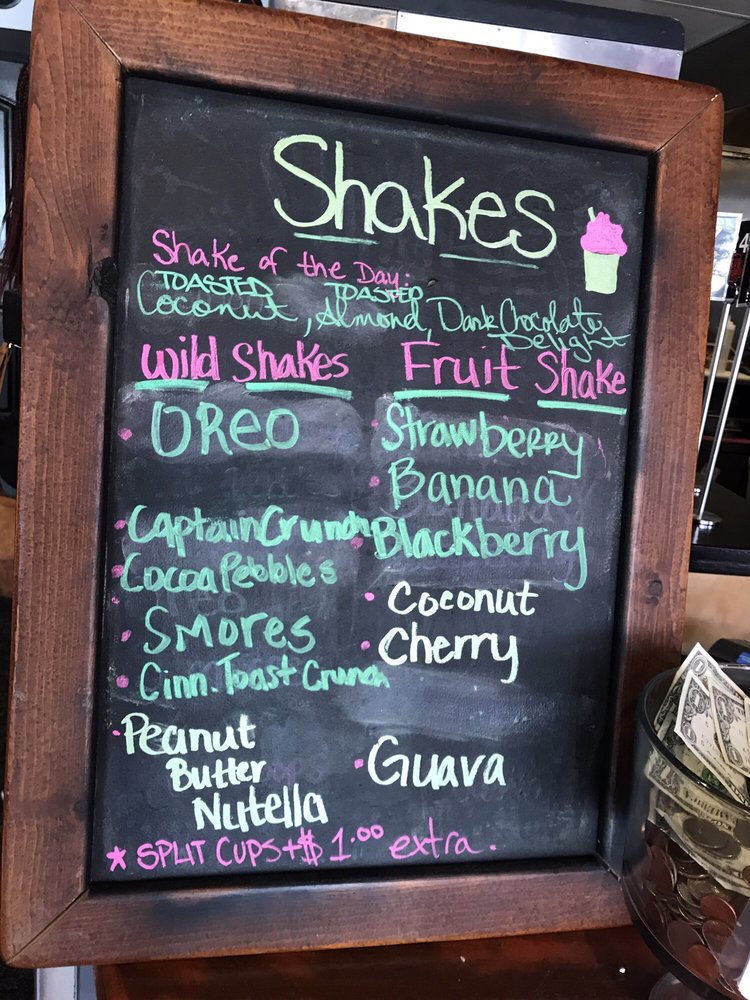 Shakes
Shake of the Day:
TOASTED TOASTED
Coconut, Almond, Dark Chocolate
Delight
Wild Shakes
OREO
Captain Crunch
Cocoa Pebbles
Smores
Cinn. Toast Crunch
Peanut
Butter
Nutella
Fruit Shake
Strawberry
Banana
Blackberry
Coconut
Cherry
Guava
* SPLIT CUPS + $1.00 extra.